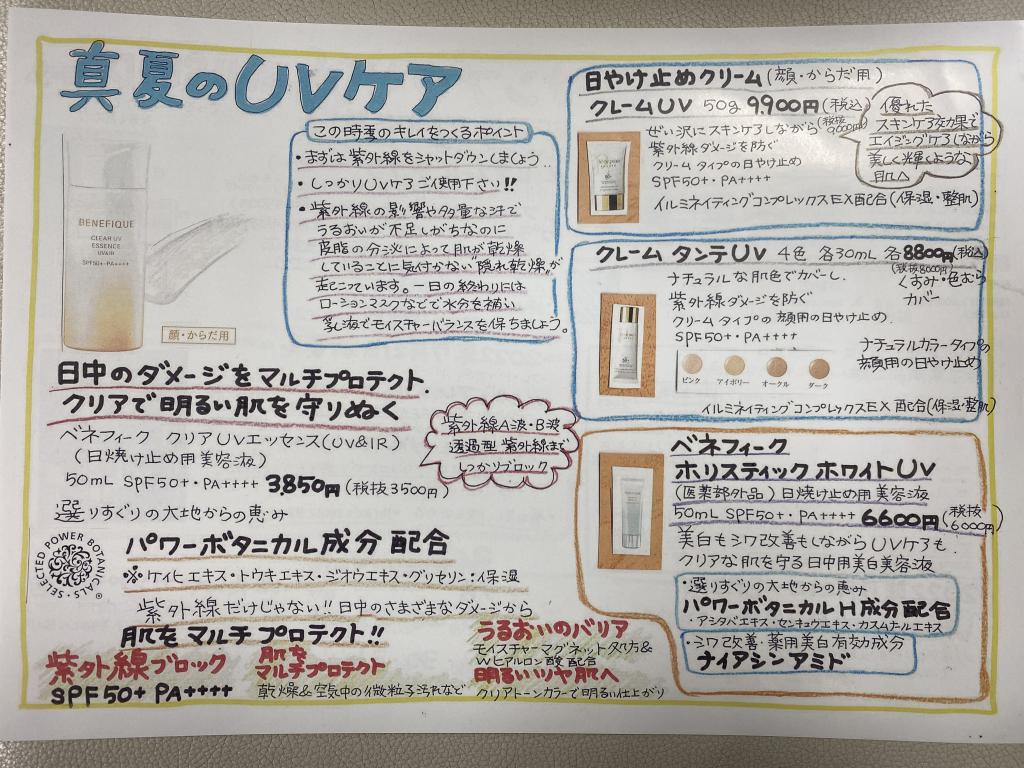 真夏のUVケア
BENEFIQUE
CLEAR UV
ESSENCE
UV&IR
SPF50+・PA++++
顔・からだ用
この時季のキレイをつくるポイント
・まずは紫外線をシャットダウンしましょう.
・しっかりUVケアご使用下さい!!
・紫外線の影響や多量な汗で
うるおいが不足しがちなのに
皮脂の分泌によって肌が乾燥
していることに気付かない"隠れ乾燥"が
起こっています。一日の終わりには
ローションマスクなどで水分を補い
乳液でモイスチャーバランスを保ちましょう。
日中のダメージをマルチプロテクト.
クリアで明るい肌を守りぬく
ベネフィーク クリアUVエッセンス(UV&IR)
(日焼け止め用美容液)
50mL SPF50+・PA++++ 3,850円(税抜3500円)
紫外線A波・B波
透過型 紫外線まで
しっかりブロック
選りすぐりの大地からの恵み
パワーボタニカル成分 配合
SELECTED POWER BOTANICALS
※ケイヒエキス・トウキエキス・ジオウエキス・グリセリン:保湿
紫外線だけじゃない!!日中のさまざまなダメージから
肌をマルチプロテクト!!
紫外線ブロック
SPF50+ PA++++
肌を
マルチプロテクト
乾燥&空気中の微粒子汚れなど
うるおいのバリア
モイスチャーマグネット処方&
Wヒアルロン酸 配合
明るいツヤ肌へ
クリアトーンカラーで明るい仕上がり
日やけ止めクリーム(顔・からだ用)
クレームUV 50g 9900円(税込)
(税抜9000円)
ぜい沢にスキンケアしながら
紫外線ダメージを防ぐ
クリームタイプの日やけ止め
SPF50+・PA++++
イルミネイティングコンプレックスEX配合(保湿・整肌)
優れた
スキンケア効果で
エイジングケアしながら
美しく輝くような
肌へ
クレーム タンテUV 4色 各30mL 各8800円(税込)
(税抜8000円)
ナチュラルな肌色でカバーし、
紫外線ダメージを防ぐ
クリームタイプの顔用の日やけ止め.
SPF50+・PA++++
くすみ・色むら
カバー
ナチュラルカラータイプの
顔用の日やけ止め
ピンク アイボリー オークル ダーク
イルミネイティングコンプレックスEX配合(保湿・整肌)
ベネフィーク
ホリスティックホワイトUV
(医薬部外品)日焼け止め用美容液
50mL SPF50+・PA++++ 6600円(税抜6000円)
美白もシワ改善もしながらUVケアも.
クリアな肌を守る日中用美白美容液
・選りすぐりの大地からの恵み
パワーボタニカルH成分配合
・アシタバエキス・センキュウエキス・カスムナールエキス
・シワ改善・薬用美白有効成分
ナイアシンアミド